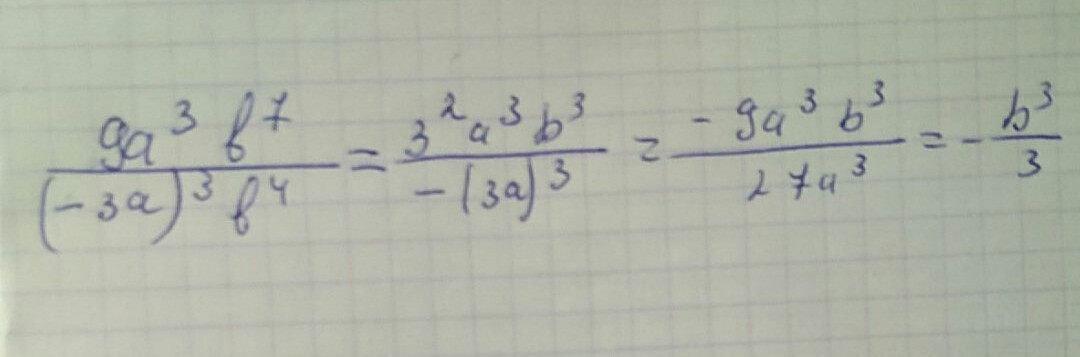 \frac{9a^3 b^7}{(-3a)^3 b^4} = \frac{3^2 a^3 b^3}{-(3a)^3} = \frac{-9a^3 b^3}{27a^3} = -\frac{b^3}{3}